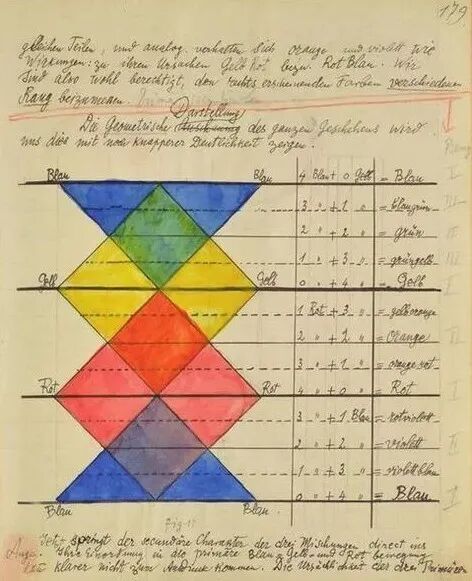 179
gleichen Teilen, und analog verhalten sich orange und violett wie
Wirkungen zu ihren Ursachen Gelb Rot bezw. Rot Blau. Wir
sind also wohl berechtigt, den rechts erscheinenden Farben verschiedenen
Rang beizumessen.
Darstellung
Die Geometrische des ganzen Geschehens wird
uns dies mit noch knapperer Deutlichkeit zeigen.
Blau Blau 4 Blau + 0 Gelb = Blau I
3 " + 1 " = blaugrün III
2 " + 2 " = grün II
1 " + 3 " = grüngelb III
Gelb Gelb 0 " + 4 " = Gelb I
1 Rot + 3 " = gelborange
2 " + 2 " = Orange II
3 " + 1 " = orangerot
Rot Rot 4 " + 0 " = Rot I
3 " + 1 Blau = rotviolett
2 " + 2 " = violett II
1 " + 3 " = violettblau
Blau Blau 0 " + 4 " = Blau I
Fig 11
springt der secundäre Charakter der drei Mischungen direct ins
Auge. Ihre Einordnung in die primäre Blau, Gelb und Rot bewegung
klarer nicht zum Ausdruck kommen. Die Ursächlichkeit der drei Primären